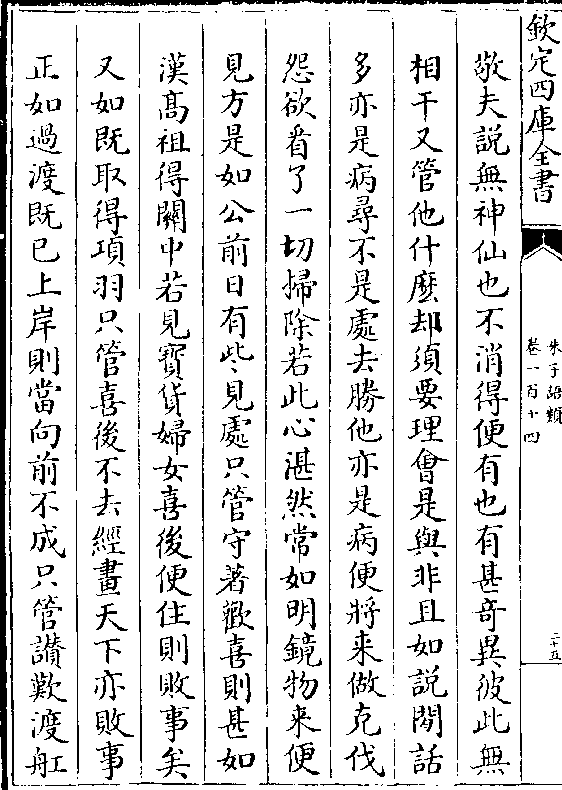 欽定四庫全書
朱子語類
卷一百十四
二十五
敬夫說無神仙也不消得便有也有甚奇異彼此無
相干又管他什麽却須要理㑹是與非且如說閒話
多亦是病尋不是處去勝他亦是病便將来做克伐
怨欲看了一切掃除若此心湛然常如明鏡物来便
見方是如公前日有些見處只管守著歡喜則甚如
漢髙祖得關中若見寳貨婦女喜後便住則敗事矣
又如既取得項羽只管喜後不去經畫天下亦敗事
正如過渡既已上岸則當向前不成只管讃歎渡舡